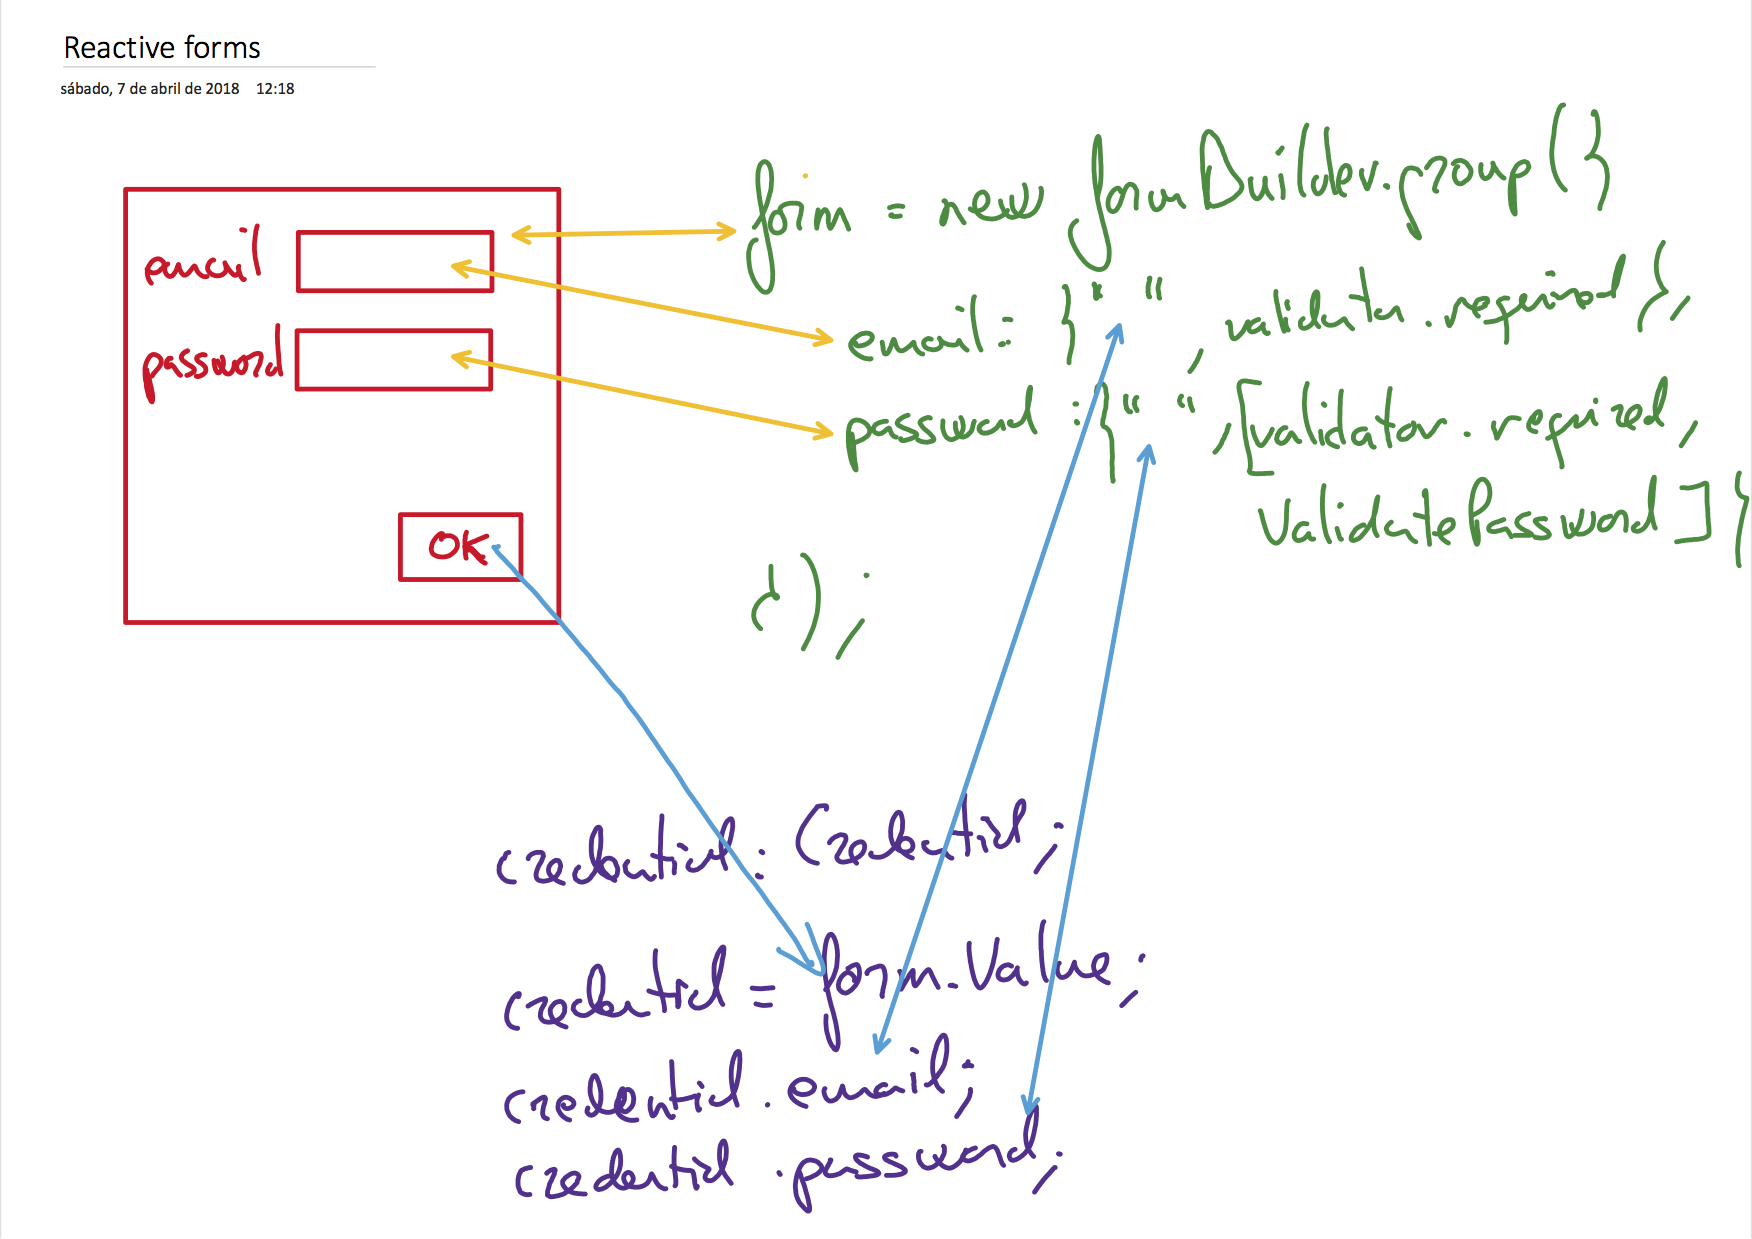 Reactive forms
sábado, 7 de abril de 2018 12:18
form = new formBuilder.group({
email
email: {" ", validator.required},
password
password: {" ", [validator.required,
ValidatePassword]}
OK
});
credential: Credential;
credential = form.Value;
credential.email;
credential.password;